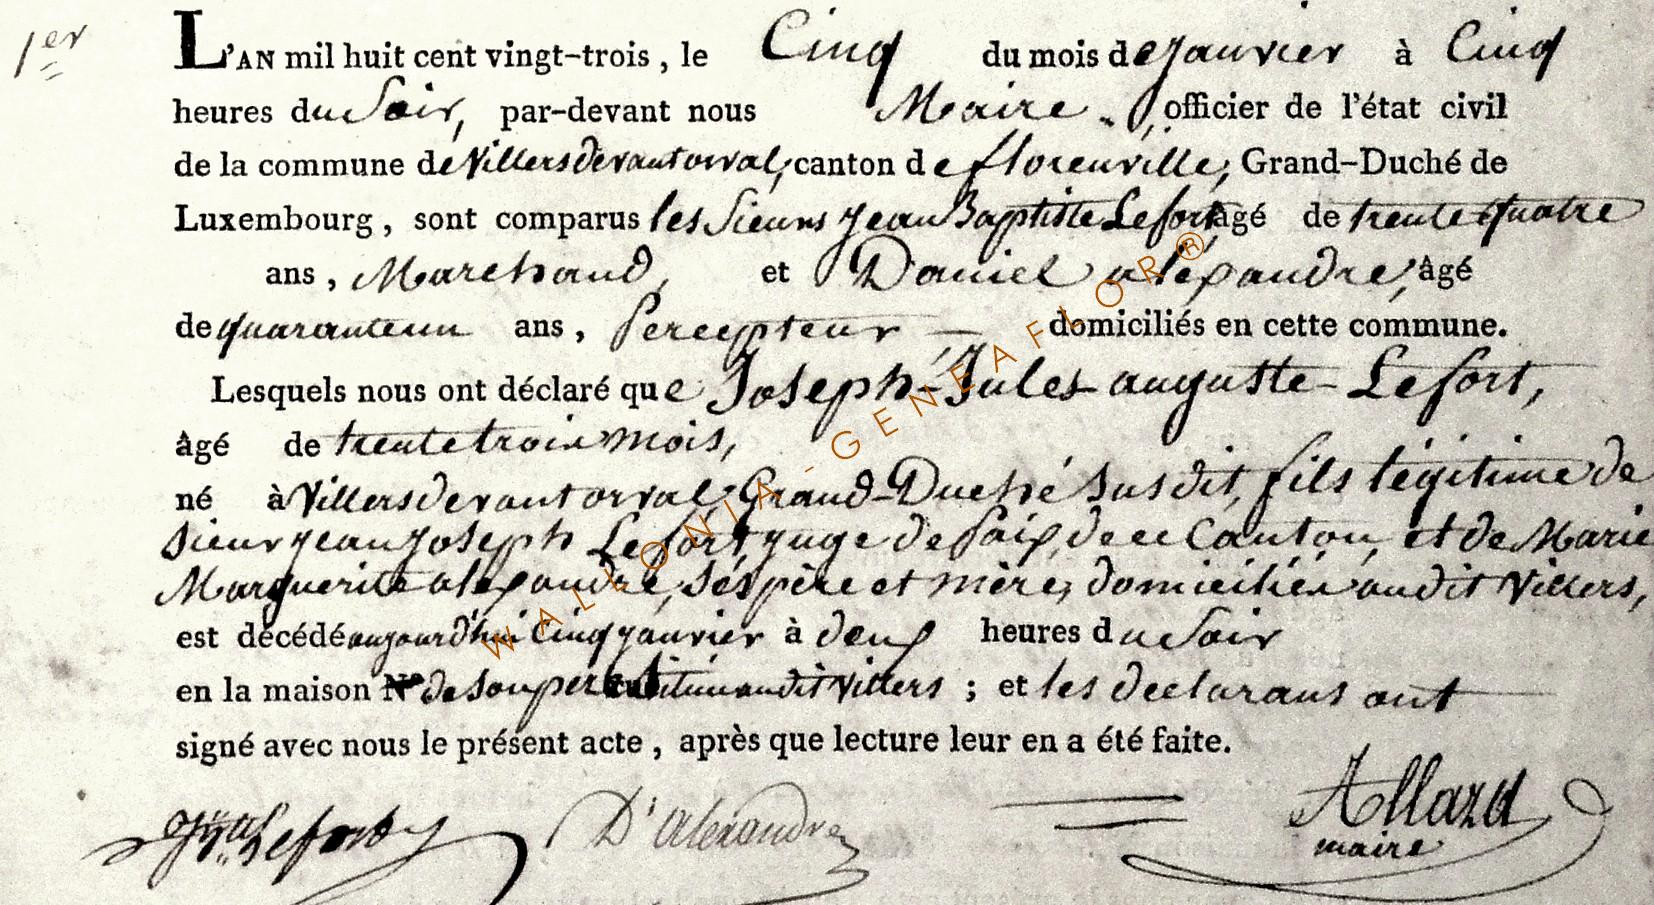 1er
L'AN mil huit cent vingt-trois, le Cinq du mois de janvier à Cinq
heures du Soir, par-devant nous Maire, officier de l'état civil
de la commune de Villersdevantorval, canton de florenville, Grand-Duché de
Luxembourg, sont comparus les Sieurs Jean Baptiste Lefort âgé de trente quatre
ans, Marchand, et Daniel alexandre, âgé
de quaranteun ans, Percepteur — domiciliés en cette commune.
Lesquels nous ont déclaré que Joseph-Jules auguste Lefort,
âgé de trentetrois mois,
né à Villersdevantorval, Grand-Duché Susdit, fils légitime de
Sieur Jean Joseph Lefort, juge de Paix de ce Canton, et de Marie
Marguerite alexandre, Ses père et mère, domiciliés audit Villers,
est décédé aujourd'hui Cinq janvier à deux heures du Soir
en la maison N° de Son père audit Villers ; et les declarans ont
signé avec nous le présent acte, après que lecture leur en a été faite.
Lefort D' Alexandre Allard
maire
WALLONIA-GENEAFLOR®